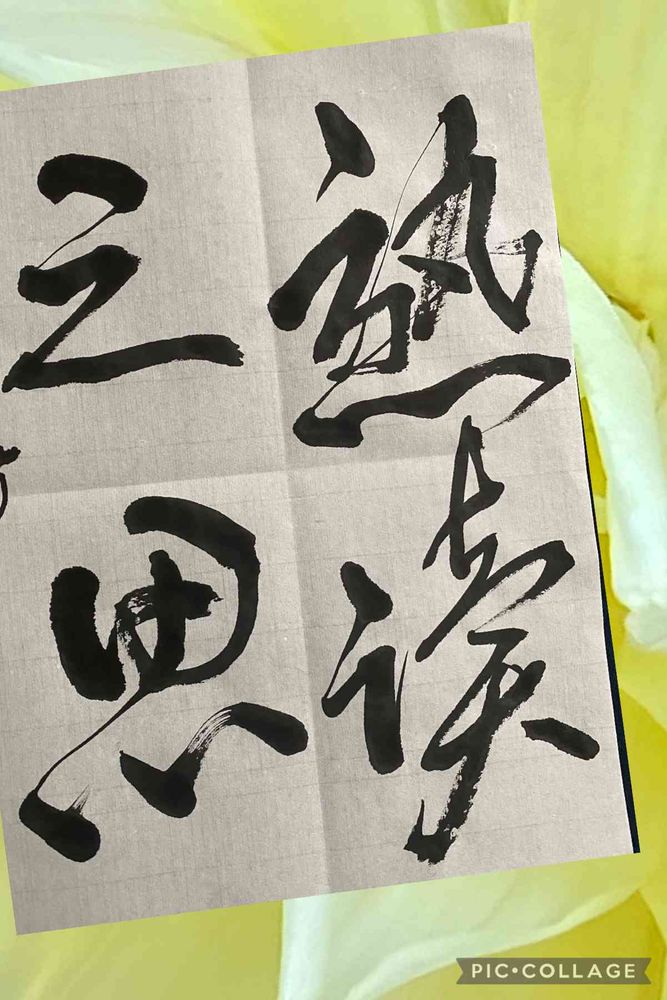 熟读
三思
PIC•COLLAGE